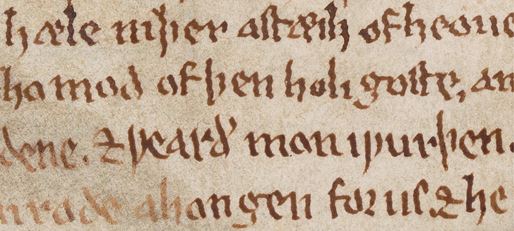 hæle niþer astæih of heoue
ho mod of þen holi goste, an
dene. ⁊ ƿearð mon iƿurþen.
rode ahongen for us. ⁊ he